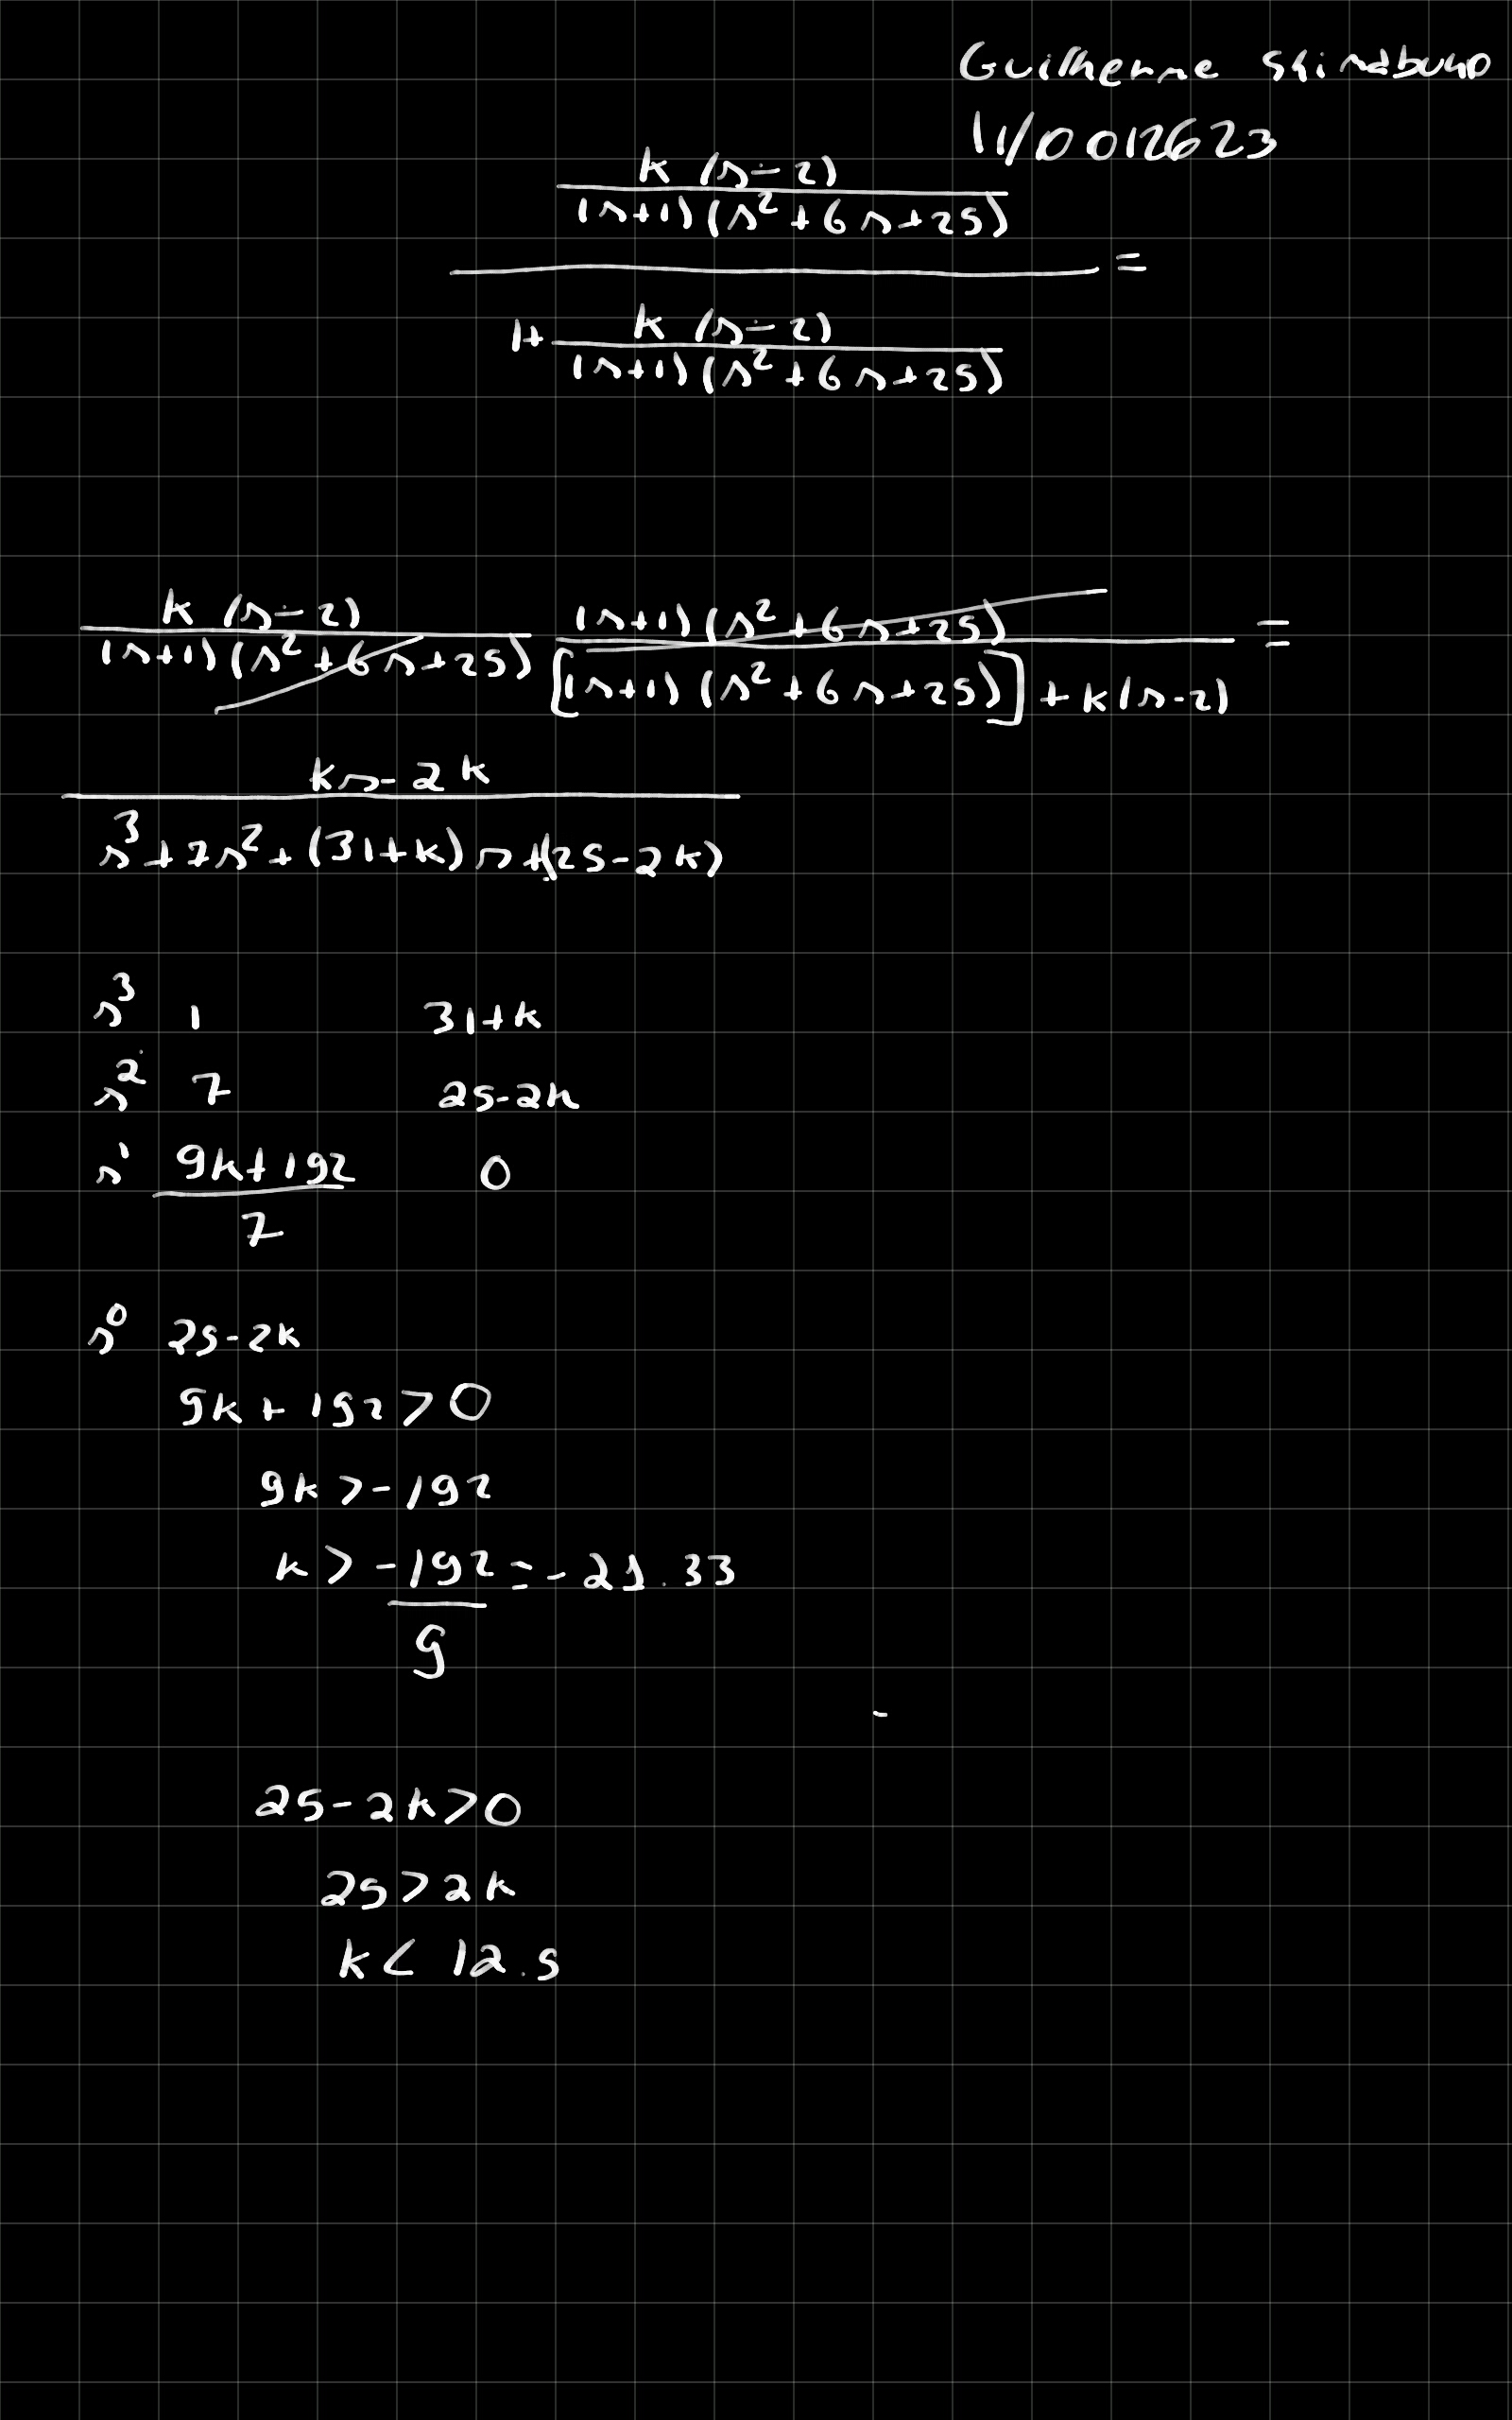 Guilherme Shimabuko
11/0012623
k (s-2)
(s+1)(s²+6s+25)
=
1+ k (s-2)
(s+1)(s²+6s+25)
k (s-2) (s+1)(s²+6s+25) =
(s+1)(s²+6s+25) [(s+1)(s²+6s+25)]+k(s-2)
ks-2k
s³+7s²+(31+k)s+(25-2k)
s³ 1 31+k
s² 7 25-2k
s¹ 9k+192 0
7
s⁰ 25-2k
9k+192>0
9k>-192
k>-192=-21.33
9
25-2k>0
25>2k
k<12.5